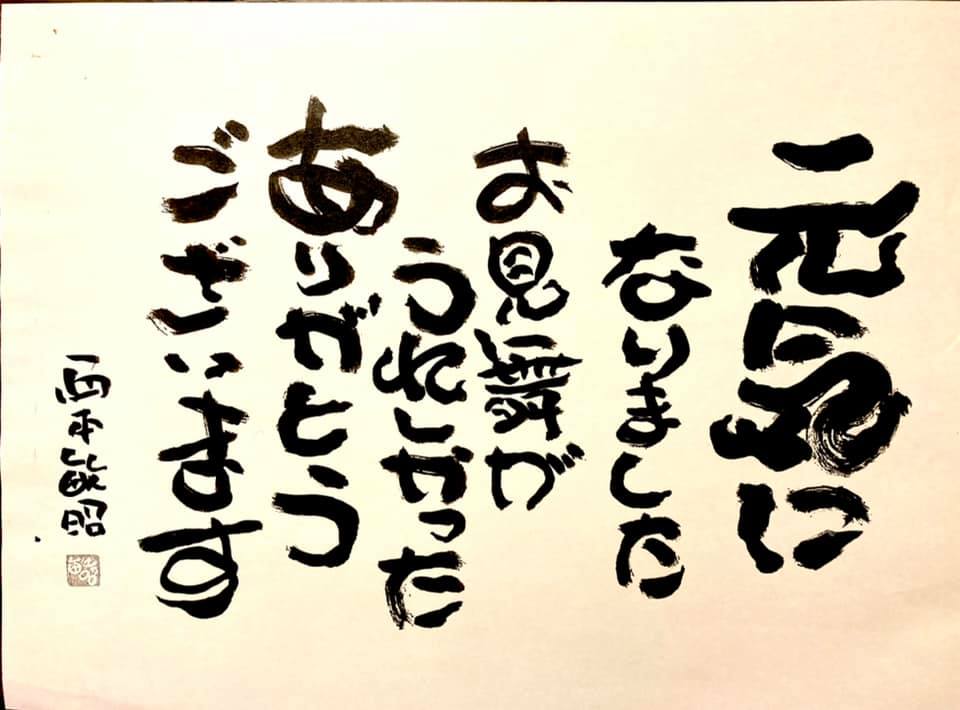 元気に
なりました
お見舞が
うれしかった
ありがとう
ございます
西本敏昭